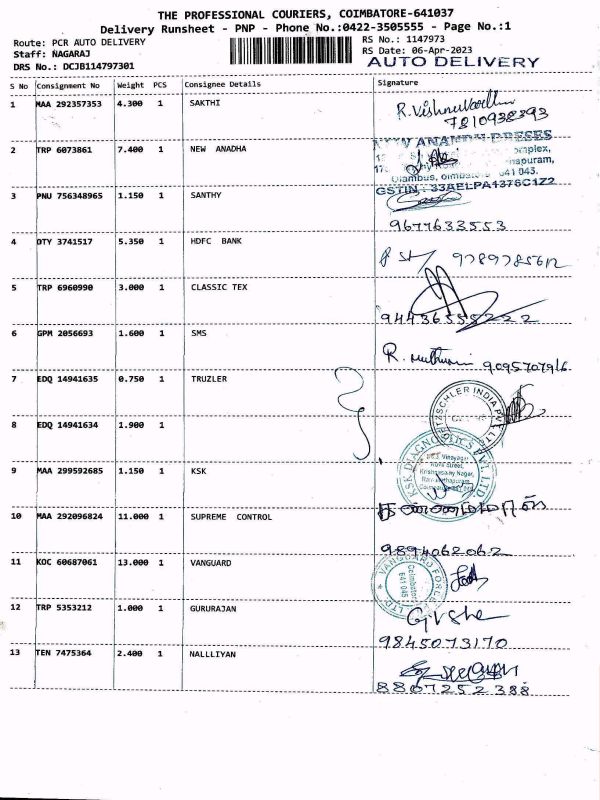 THE PROFESSIONAL COURIERS, COIMBATORE-641037
Delivery Runsheet - PNP - Phone No.:0422-3505555 - Page No.:1
Route: PCR AUTO DELIVERY
RS No.: 1147973
Staff: NAGARAJ
RS Date: 06-Apr-2023
DRS No.: DCJB114797301
AUTO DELIVERY
S No Consignment No Weight PCS Consignee Details Signature
1 MAA 292357353 4.300 1 SAKTHI
7810938393
2 TRP 6073861 7.400 1 NEW ANADHA
641 045.
GSTIN : 33AELPA1376C1Z2
3 PNU 756348965 1.150 1 SANTHY
9677633553
4 OTY 3741517 5.350 1 HDFC BANK
5 TRP 6960990 3.000 1 CLASSIC TEX
6 GPM 2056693 1.600 1 SMS
R.
7 EDQ 14941635 0.750 1 TRUZLER
8 EDQ 14941634 1.900 1
KSK DIAGNOSTICS PVT. LTD
9 MAA 299592685 1.150 1 KSK
10 MAA 292096824 11.000 1 SUPREME CONTROL
9894062062
11 KOC 60687061 13.000 1 VANGUARD
Coimbatore
641 045
12 TRP 5353212 1.000 1 GURURAJAN
9845073170
13 TEN 7475364 2.400 1 NALLLIYAN
8807252388